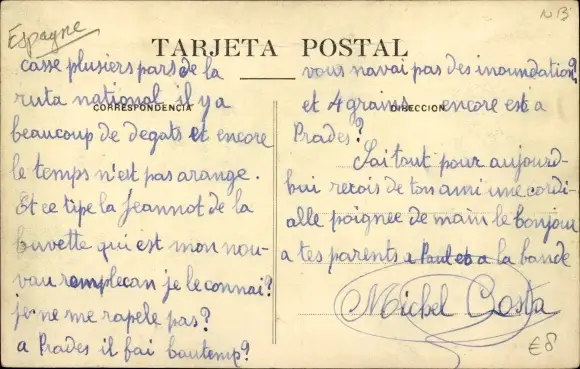 Espagne
NB
TARJETA POSTAL
CORRESPONDENCIA
DIRECCION
casse plusiers pars de la
ruta national il y a
beaucoup de degats et encore
le temps n'est pas arange.
Et ce tipe la Jeannot de la
buvette qui est mon nou-
vau remplecan je le connai?
je ne me rapele pas?
a Prades il fai bautemp?
vous navai pas des inoundation?
et 4 grains encore est a
Prades?
Sai tout pour aujourd-
hui recois de ton ami une cordi-
alle poignee de main le bonjou
a tes parents a Paul et a la bande
Michel Costa
€8